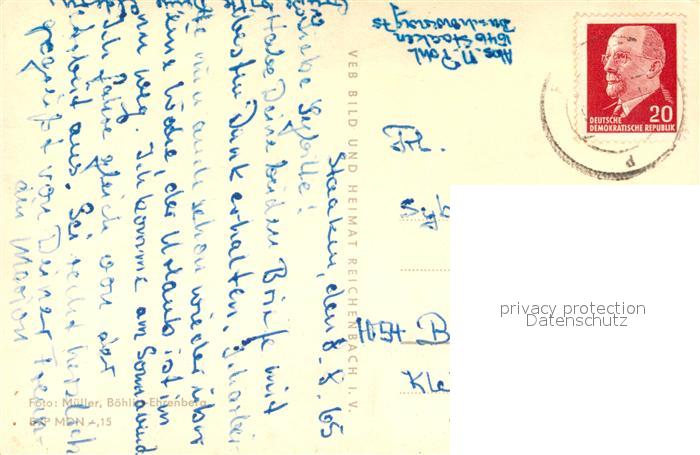 Staaken, den 8. 8. 65
Liebe Sybille!
Habe Deine beiden Briefe mit
bestem Dank erhalten. Ich arbei-
te nun auch schon wieder über
eine Woche, der Urlaub ist im
nu weg. Ich komme am Sonnabend
Ich fahre gleich von der
Arbeit aus. Sei recht herzlich
gegrüßt von Deiner Freun-
din Marion
Abs. M. Pohl
1546 Staaken
75
VEB BILD UND HEIMAT REICHENBACH I. V.
Foto: Müller, Böhlitz-Ehrenberg
EVP MDN -,15
Frl.
DEUTSCHE
DEMOKRATISCHE REPUBLIK
20
privacy protection
Datenschutz